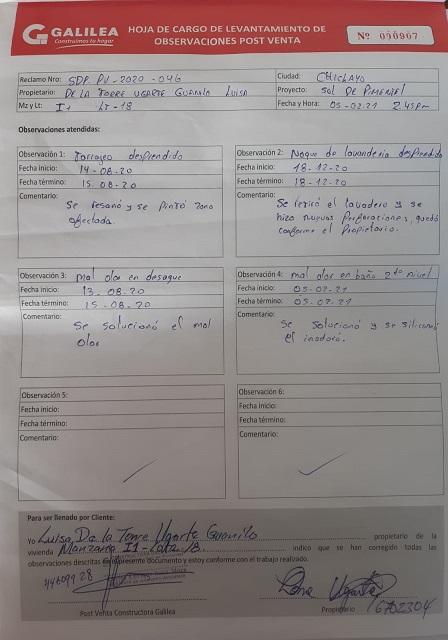 GALILEA
Construimos tu hogar
HOJA DE CARGO DE LEVANTAMIENTO DE
OBSERVACIONES POST VENTA
Nº 000907
Reclamo Nro: SDP. PV-2020-046 Ciudad: CHICLAYO
Propietario: DE LA TORRE UGARTE GUANILO LUISA Proyecto: SOL DE PIMENTEL
Mz y Lt: I1 LT-18 Fecha y Hora: 05-02.21 2:45pm
Observaciones atendidas:
Observación 1: Tarrageo desprendido
Fecha inicio: 14-08-20
Fecha término: 15.08-20
Comentario:
Se resanó y se pintó zona
afectada.
Observación 2: Naque de lavanderia desprendido
Fecha inicio: 18-12-20
Fecha término: 18-12-20
Comentario:
Se retiró el lavadero y se
hizo nuevas perforaciones, quedó
conforme el propietario.
Observación 3: mal olor en desague
Fecha inicio: 13.08.20
Fecha término: 15.08.20
Comentario:
Se solucionó el mal
olor
Observación 4: mal olor en baño 2do nivel
Fecha inicio: 05-02-21
Fecha término: 05-02-21
Comentario:
Se solucionó y se siliconó
el inodoro.
Observación 5:
Fecha inicio:
Fecha término:
Comentario:
Observación 6:
Fecha inicio:
Fecha término:
Comentario:
Para ser llenado por Cliente:
Yo Luisa De la Torre Ugarte Guanilo propietario de la
vivienda Manzana I1-Lote 18 indico que se han corregido todas las
observaciones descritas en el presente documento y estoy conforme con el trabajo realizado.
44609928
Ugarte
Post Venta Constructora Galilea
Propietario
16702304